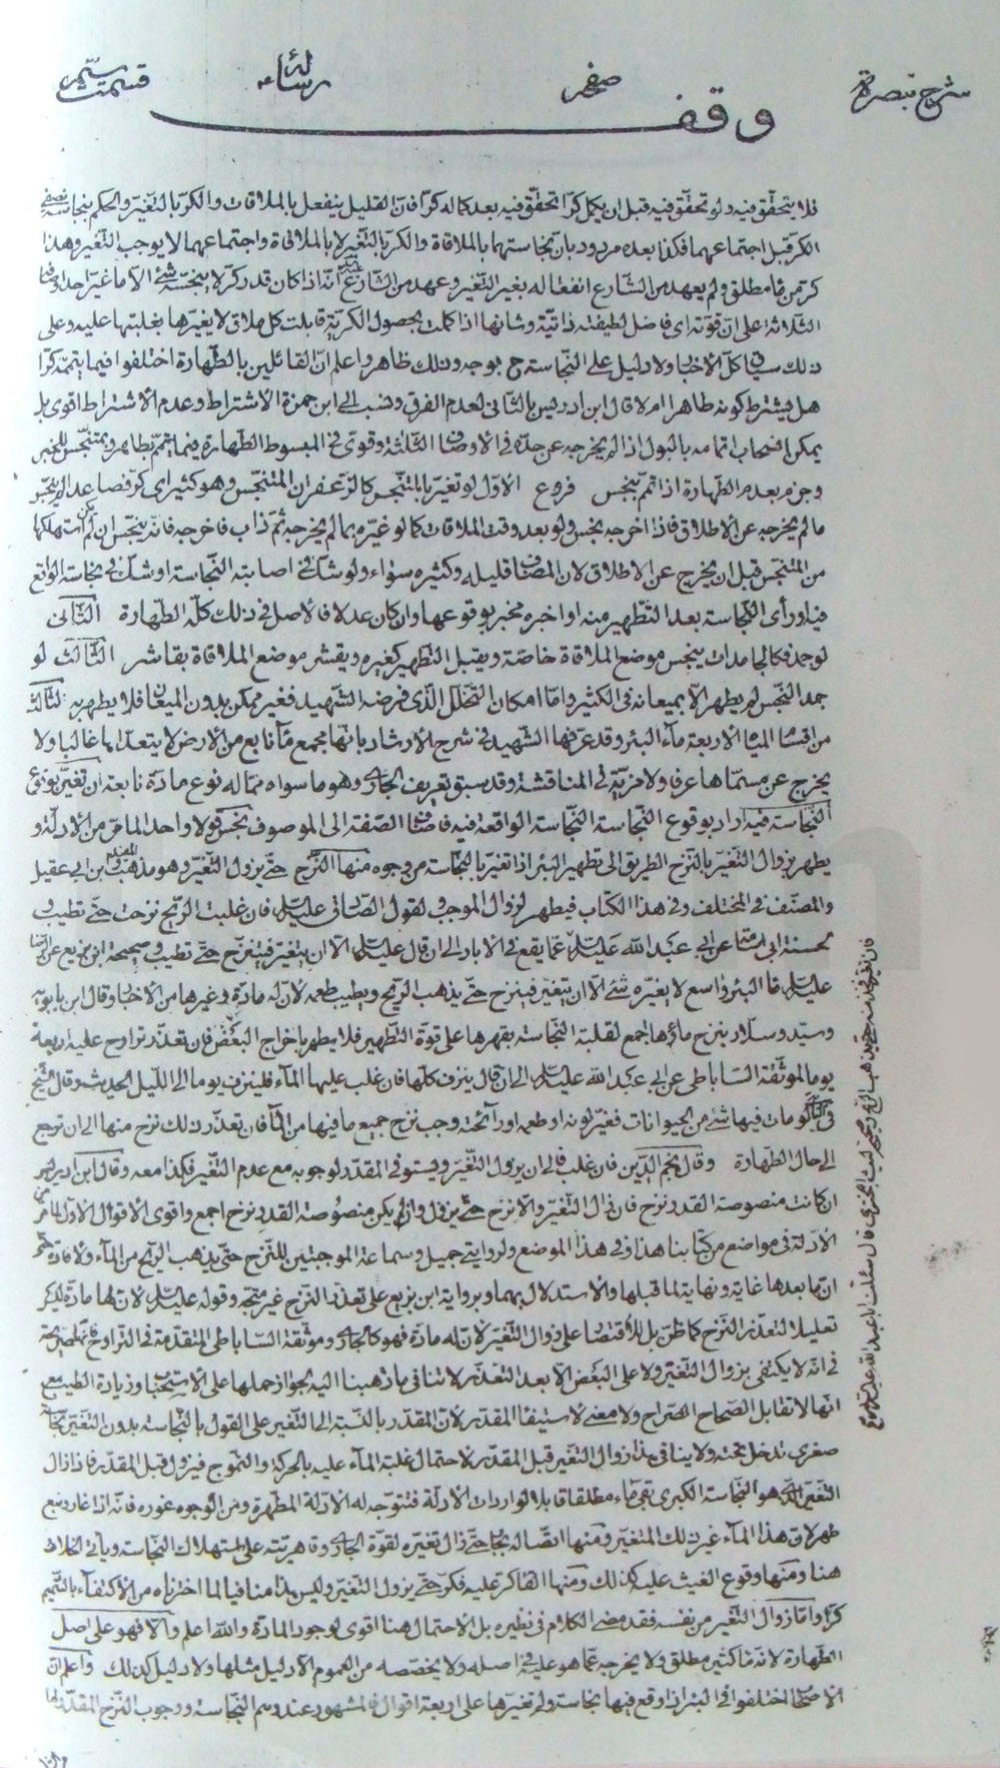 شرح تبصرة
صفحه
رسائله
قسمت
وقف
فلا يتحقق فيه ولو تحقق فيه قبل ان يكمل كرّا تحقق فيه بعد كماله كرّا فان القليل ينفعل بالملاقات والكرّ بالتغيّر والحكم بنجاسة نصفى
الكر قبل اجتماعهما فكذا بعده مردود بان نجاستهما بالملاقاة والكر بالتغيّر لا بالملاقاة واجتماعهما لا يوجب التغيّر وهذا
كرّ من ماء مطلق ولم يعهد من الشارع انفعاله بغير التغيّر وعهد من الشارع انّه اذا كان قدر كرّ لا ينجّسه شئ الّا ما غيّر احد اوصافه
الثلاثة على انّ قوته اى فاضل لطيفته ذاتيّة وشانها اذا كملت بحصول الكريّة قابلت كل ملاق لا يغيّرها بغلبتها عليه وعلى
ذلك سياق كلّ الاخبار ولا دليل على النّجاسة ح بوجه وذلك ظاهر واعلم انّ القائلين بالطّهارة اختلفوا فيما يتمّه كرّا
هل يشترط كونه طاهرا ام لا قال ابن ادريس بالثانى لعدم الفرق ونسب الى ابن حمزة الاشتراط وعدم الاشتراط اقوى بل
يمكن انسحاب اتمامه بالبول اذا لم يخرجه عن حدّه فى الاوصاف الثّلثة وقوّى فى المبسوط الطّهارة فيما تمّم بطاهر وبمتنجّس للخبر
وجزم بعدم الطّهارة اذا تمّم بنجس فروع الاوّل لو تغيّر بالمتنجّس كالزعفران المتنجّس وهو كثير اى كرّ فصاعدا لم ينجس
ما لم يخرجه عن الاطلاق فاذا اخرجه نجس ولو بعد وقت الملاقات كما لو غيّره بما لم يخرجه ثمّ ذاب فاخرجه فانّه ينجّس ان لم يكن استهلكها
من المتنجّس قبل ان يخرج عن الاطلاق لان المضاف قليله وكثيره سواء ولو شكّ فى اصابته النّجاسة او شكّ فى نجاسة الواقع
فيه او رأى النّجاسة بعد التّطهير منه او اخبره مخبر بوقوعها وان كان عدلا فالاصل فى ذلك كلّه الطّهارة الثّانى
لو جمد فكالجامدات ينجس موضع الملاقاة خاصّة ويقبل التّطهير كغيره ويقشر موضع الملاقاة بقاشر الثّالث لو
جمد النّجس لم يطهر الا بميعانه فى الكثير وامّا امكان التّخلّل الّذى فرضه الشّهيد فغير ممكن بدون الميعان فلا يطهر به الثّالث
من اقسام المياه الاربعة ماء البئر وقد عرّفها الشّهيد فى شرح الارشاد بانّها مجمع ماء نابع من الارض لا يتعدّاها غالبا ولا
يخرج عن مسمّاها عرفا ولا مزيّة فى المناقشة وقد سبق تعريف الجارى وهو ما سواه ممّا له نوع مادّة نابعة ان تغيّر بوقوع
النّجاسة فيه اراد بوقوع النّجاسة النّجاسة الواقعة فيه فاضاف الصّفة الى الموصوف نجس قولا واحدا لما مرّ من الادلّة و
يطهر بزوال التّغيّر بالنّزح الطريق الى تطهير البئر اذا تغيّر بالنّجاسة من وجوه منها النّزح حتّى يزول التّغيّر وهو مذهب المفيد وابن ابى عقيل
والمصنّف فى المختلف وفى هذا الكتاب فيطهر لزوال الموجب ولقول الصّادق عليه السّلام فان غلبت الرّيح نزحت حتّى تطيب و
لحسنة ابى اسامة عن ابى عبد الله عليه السّلام عمّا يقع فى الآبار الى ان قال عليه السّلام الا ان يتغيّر فينزح حتّى تطيب وصحيحة ابن بزيع عن الرّضا
عليه السّلام ماء البئر واسع لا يغيّره شئ الّا ان يتغيّر فينزح حتّى يذهب الرّيح ويطيب طعمه لان له مادّة وغيرها من الاخبار وقال ابن بابويه
وسيّد وسلّار ينزح ماؤها اجمع لغلبة النّجاسة بقهرها على قوّة التّطهير فلا يطهر باخراج البعض فان تعذّر تراوح عليه اربعة
يوما لموثّقة السّاباطى عن ابى عبد الله عليه السّلام الى ان قال ينزف كلّها فان غلب عليها الماء فلينزف يوما الى اللّيل الحديث وقال الشّيخ
فى لو مات فيها شئ من الحيوانات فغيّر لونه او طعمه او رآئحته وجب نزح جميع ما فيها من الماء فان تعذّر ذلك نزح منها الى ان ترجع
الى حال الطّهارة وقال نجم الدّين فان غلب فالى ان يزول التّغيّر ويستوفى المقدّر لوجوبه مع عدم التّغيّر فكذا معه وقال ابن ادريس
ان كانت منصوصة القدر نزح فان زال التّغيّر والّا نزح حتّى يزول وان لم يكن منصوصة القدر نزح اجمع واقوى الاقوال الاوّل لما مرّ من
الادلّة فى مواضع من كتابنا هذا وفى هذا الموضع ولروايتى جميل وسماعة الموجبتين للنّزح حتّى يذهب الرّيح من الماء ولافادة حتّى
انّ ما بعدها غاية ونهاية لما قبلها والاستدلال بهما وبرواية ابن بزيع على تعذّر النّزح غير متّجه وقوله عليه السّلام لان لها مادّة ليس
تعليلا لتعذّر النّزح كما ظنّ بل للاقتصار على زوال التّغيّر لانّ له مادّة فهو كالجارى وموثّقة السّاباطى المتقدّمة فى التراوح فانّها صريحة
فى انّه لا يكتفى بزوال التّغيّر ولا على البعض الّا بعد التّعذّر لا تنافى ما ذهبنا اليه لجواز حملها على الاستحباب وزيادة الطيب مع
انّها لا تقابل الصّحاح الصّراح ولا معنى لاستيفاء المقدّر لانّ المقدّر بالنّسبة الى التّغيّر على القول بالنّجاسة بدون التّغيّر نجاسة
صغرى تدخل تحته ولا ينافى هذا زوال التّغيّر قبل المقدّر لاحتمال غلبة الماء عليه بالحركة والتّموّج فيزول قبل المقدّر فاذا زال
التّغيّر الّذى هو النّجاسة الكبرى بقى ماء مطلقا قابلا لواردات الادلّة فتتوجّه له الادلّة المطهّرة ومن الوجوه غوره فانّه اذا غار ونبع
طهر لان هذا الماء غير ذلك المتغيّر ومنها اتّصاله بجار حتّى زال تغيّره لقوّة الجارى وقاهريّته على استهلاك النّجاسة وياتى الخلاف
هنا ومنها وقوع الغيث عليه كذلك ومنها القاء كرّ عليه فكرّ حتّى يزول التّغيّر وليس هذا منافيا لما اخترناه من الاكتفاء بالتّتميم
كرّا وامّا زوال التّغيّر من نفسه فقد مضى الكلام فى نظيره بل الاحتمال هنا اقوى لوجود المادّة والله اعلم والا فهو على اصل
الطّهارة لانه ماء كثير مطلق ولا يخرجه عمّا هو عليه فى اصله ولا يخصّصه من العموم الّا دليل مثلها ولا دليل كذلك واعلم انّ
الاصحاب اختلفوا فى البئر اذا وقع فيها نجاسة ولم تغيّرها على اربعة اقوال فالمشهور عندهم النّجاسة ووجوب النّزح المقدّر لها